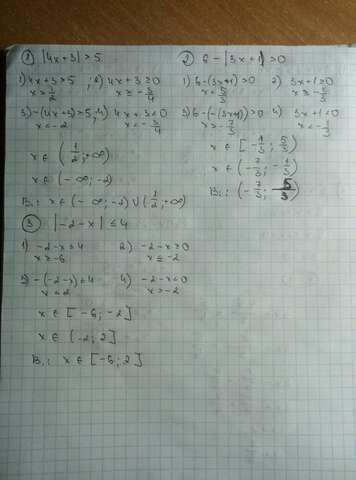 ① |4x+3|>5
1) 4x+3>5 ; 2) 4x+3≥0
x>1/2 x≥-3/4
3) -(4x+3)>5 ; 4) 4x+3<0
x<-2 x<-3/4
x ∈ (1/2; +∞)
x ∈ (-∞; -2)
В.: x ∈ (-∞; -2) ∪ (1/2; +∞)
② 6-|3x+1|>0
1) 6-(3x+1)>0 2) 3x+1≥0
x<5/3 x≥-1/3
3) 6-(-(3x+1))>0 4) 3x+1<0
x>-7/3 x<-1/3
x ∈ [-1/3; 5/3)
x ∈ (-7/3; -1/3)
В.: (-7/3; 5/3)
③ |-2-x|≤4
1) -2-x≤4 2) -2-x≥0
x≥-6 x≤-2
3) -(-2-x)≤4 4) -2-x<0
x≤2 x>-2
x ∈ [-6; -2]
x ∈ (-2; 2]
В.: x ∈ [-6; 2]